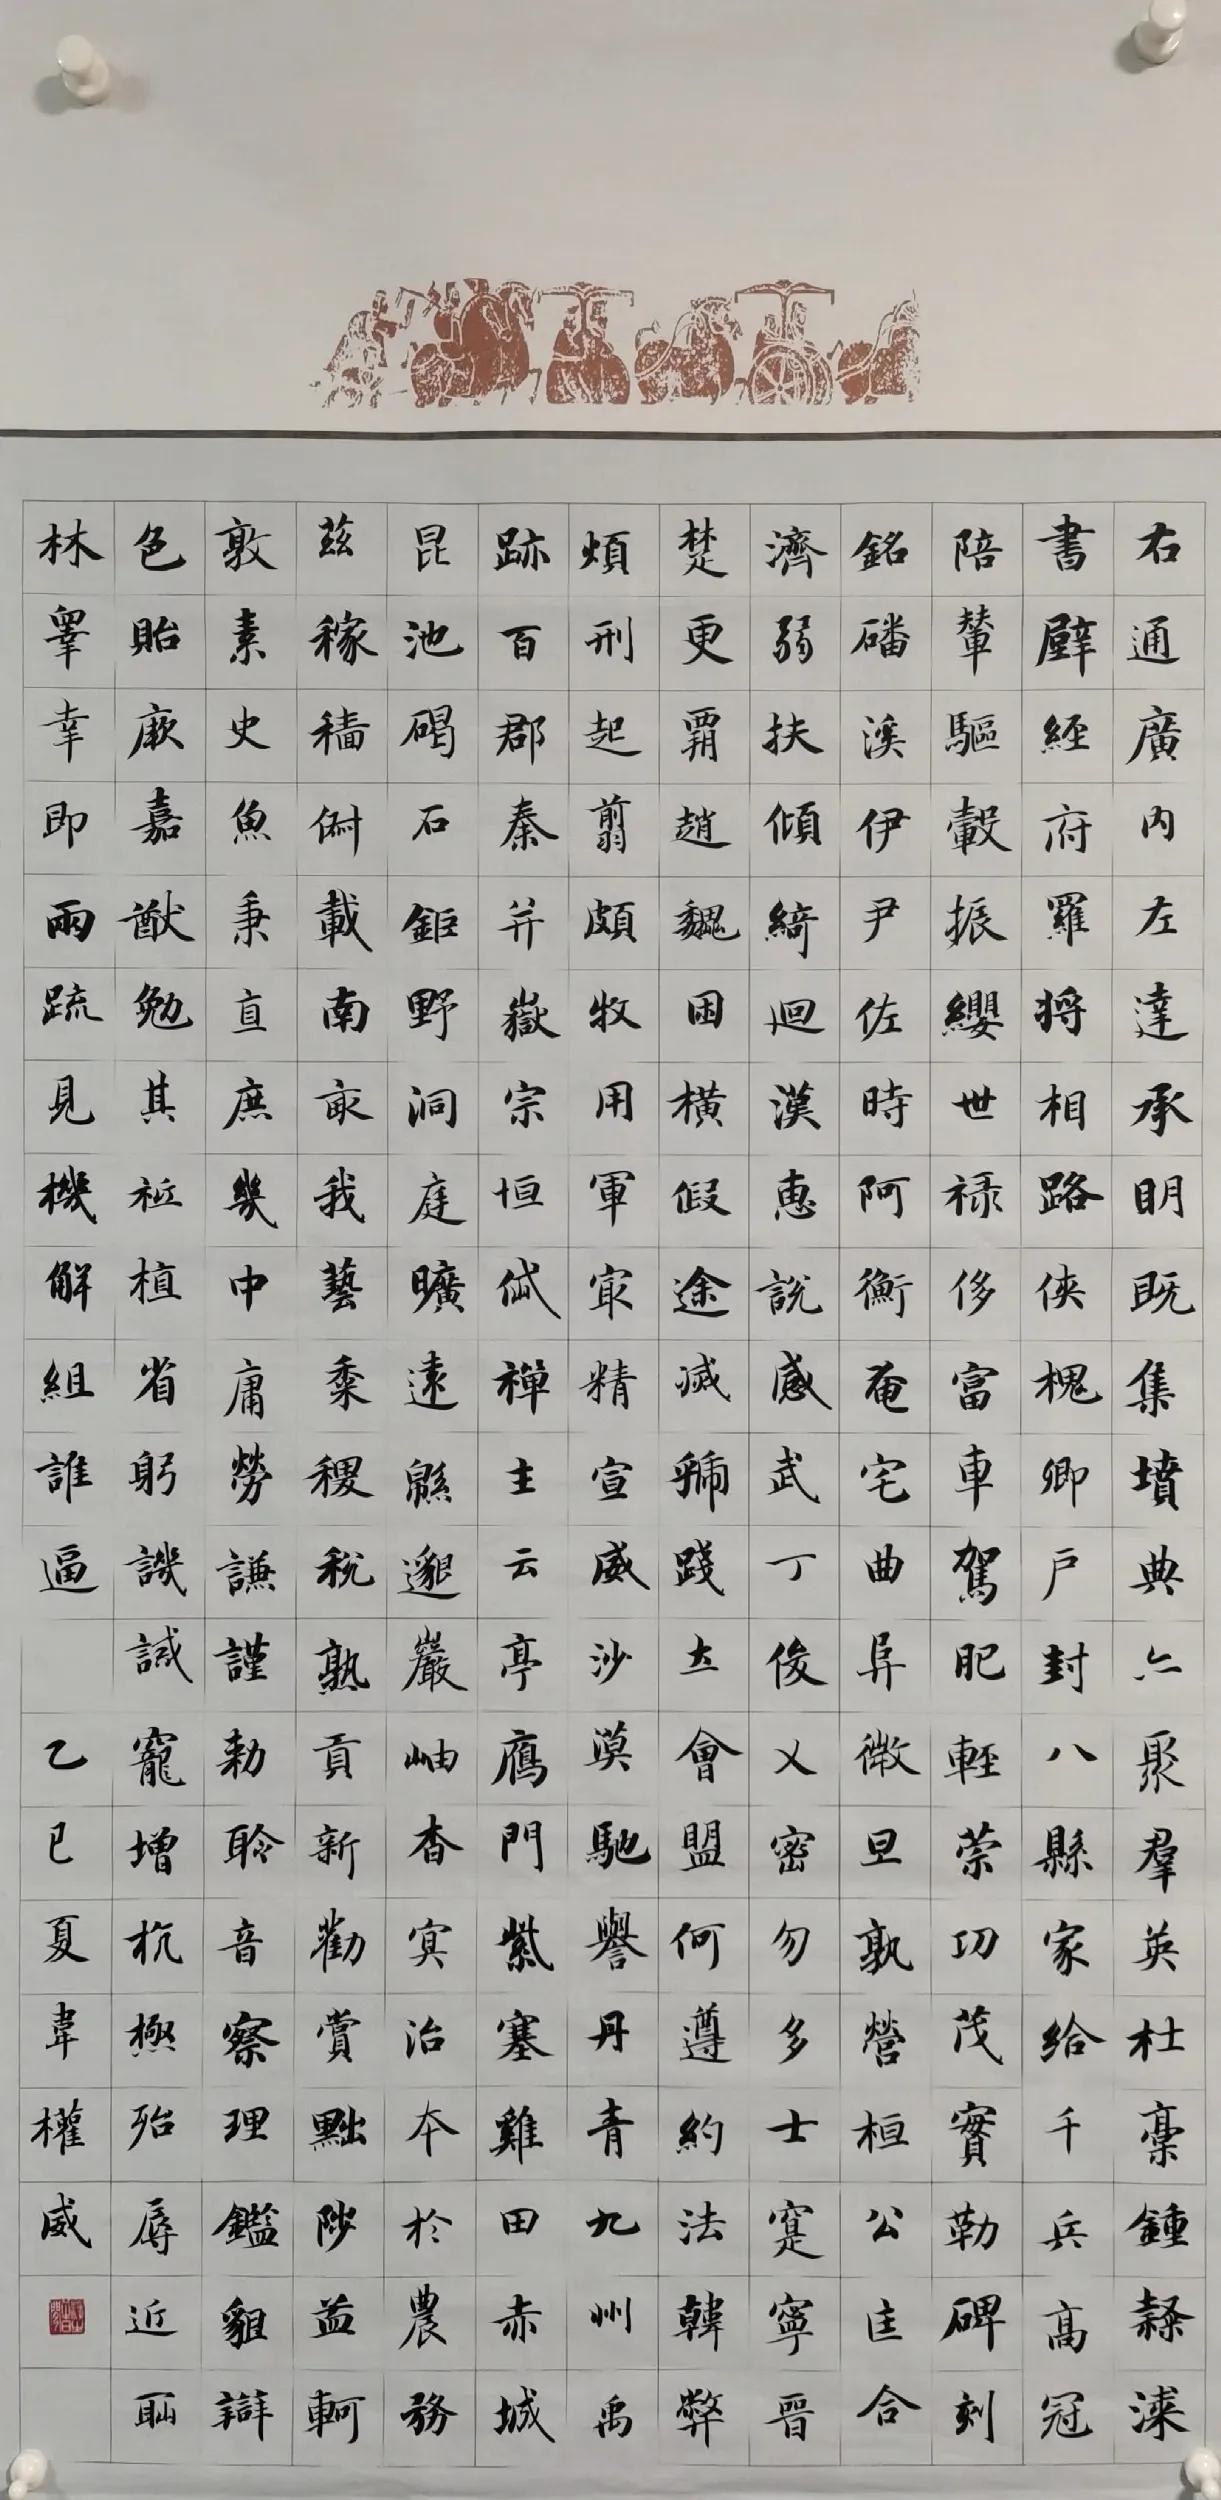 右通廣內左達承明既集墳典亦聚羣英杜稾鍾隸漆
書壁經府羅將相路俠槐卿戶封八縣家給千兵高冠
陪輦驅轂振纓世祿侈富車駕肥輕策功茂實勒碑刻
銘磻溪伊尹佐時阿衡奄宅曲阜微旦孰營桓公匡合
濟弱扶傾綺迴漢惠說感武丁俊乂密勿多士寔寧晉
楚更霸趙魏困橫假途滅虢踐土會盟何遵約法韓弊
煩刑起翦頗牧用軍最精宣威沙漠馳譽丹青九州禹
跡百郡秦并嶽宗恒岱禪主云亭鴈門紫塞雞田赤城
昆池碣石鉅野洞庭曠遠緜邈巖岫杳冥治本於農務
茲稼穡俶載南畝我藝黍稷稅熟貢新勸賞黜陟孟軻
敦素史魚秉直庶幾中庸勞謙謹勑聆音察理鑑貌辯
色貽厥嘉猷勉其祗植省躬譏誡寵增抗極殆辱近恥
林皋幸即兩疏見機解組誰逼 乙巳夏韋權威